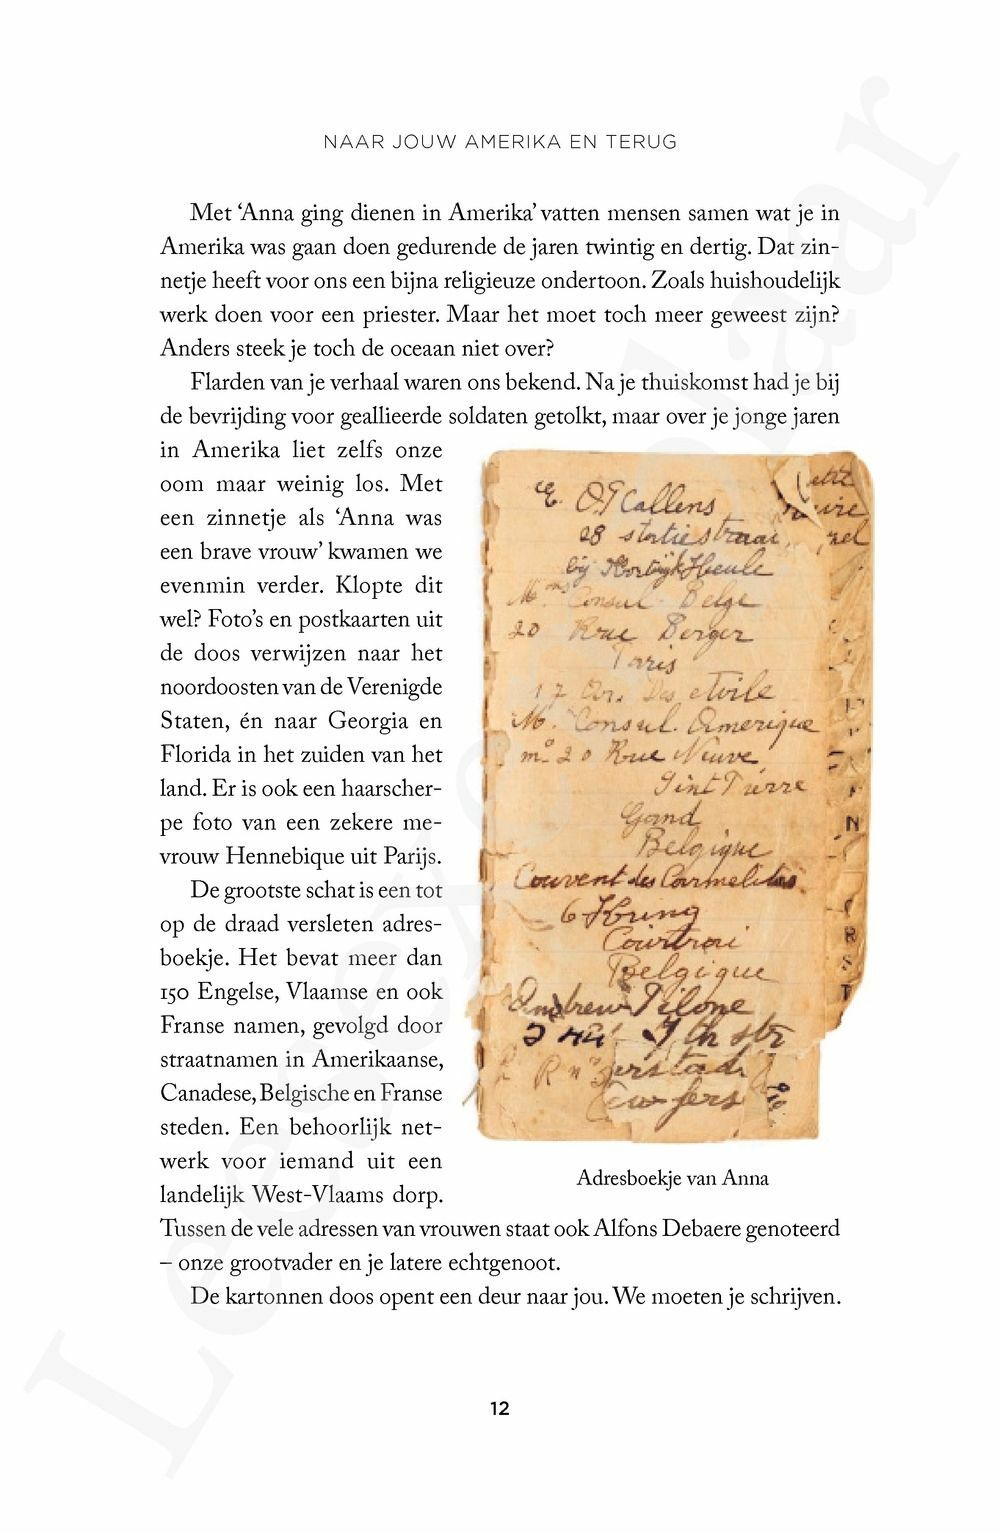 NAAR JOUW AMERIKA EN TERUG
Met ‘Anna ging dienen in Amerika’ vatten mensen samen wat je in
Amerika was gaan doen gedurende de jaren twintig en dertig. Dat zin-
netje heeft voor ons een bijna religieuze ondertoon. Zoals huishoudelijk
werk doen voor een priester. Maar het moet toch meer geweest zijn?
Anders steek je toch de oceaan niet over?
Flarden van je verhaal waren ons bekend. Na je thuiskomst had je bij
de bevrijding voor geallieerde soldaten getolkt, maar over je jonge jaren
in Amerika liet zelfs onze
oom maar weinig los. Met
een zinnetje als ‘Anna was
een brave vrouw’ kwamen we
evenmin verder. Klopte dit
wel? Foto’s en postkaarten uit
de doos verwijzen naar het
noordoosten van de Verenigde
Staten, én naar Georgia en
Florida in het zuiden van het
land. Er is ook een haarscher-
pe foto van een zekere me-
vrouw Hennebique uit Parijs.
De grootste schat is een tot
op de draad versleten adres-
boekje. Het bevat meer dan
150 Engelse, Vlaamse en ook
Franse namen, gevolgd door
straatnamen in Amerikaanse,
Canadese, Belgische en Franse
steden. Een behoorlijk net-
werk voor iemand uit een
landelijk West-Vlaams dorp.
Tussen de vele adressen van vrouwen staat ook Alfons Debaere genoteerd
– onze grootvader en je latere echtgenoot.
De kartonnen doos opent een deur naar jou. We moeten je schrijven.
Callens
28 statiestraat
bij Kortrijk Heule
Consul Belge
20 Rue Berger
Paris
17 Av. Des etoile
M. Consul. Amerique
20 Rue Neuve
Sint Pierre
Gand
Belgique
Couvent des Carmelites
6
Courtrai
Belgique
Andrew Pilone
7th str
N
R
S
T
Adresboekje van Anna
12
Leesexemplaar